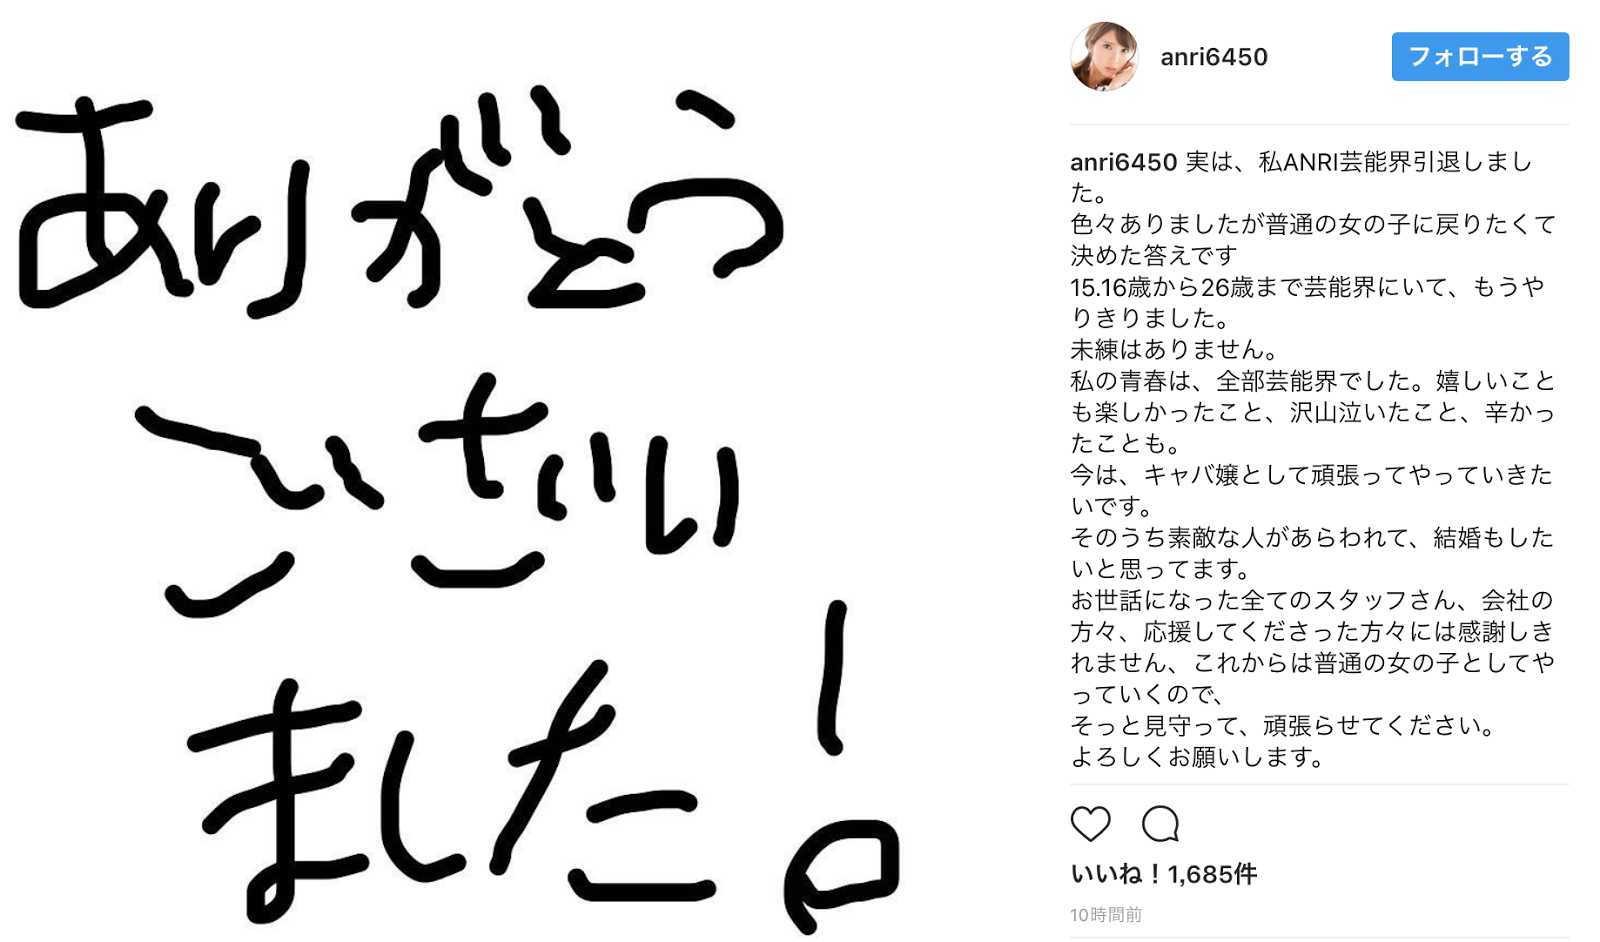 ありがとう
ございい
ました!
anri6450
フォローする
anri6450 実は、私ANRI芸能界引退しまし
た。
色々ありましたが普通の女の子に戻りたくて
決めた答えです
15.16歳から26歳まで芸能界にいて、もうや
りきりました。
未練はありません。
私の青春は、全部芸能界でした。嬉しいこと
も楽しかったこと、沢山泣いたこと、辛かっ
たことも。
今は、キャバ嬢として頑張ってやっていきた
いです。
そのうち素敵な人があらわれて、結婚もした
いと思ってます。
お世話になった全てのスタッフさん、会社の
方々、応援してくださった方々には感謝しき
れません、これからは普通の女の子としてや
っていくので、
そっと見守って、頑張らせてください。
よろしくお願いします。
いいね！1,685件
10時間前